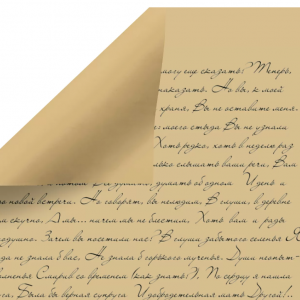 могу еще сказать? Теперь,
наказать. Но вы, к моей
храня, Вы не оставите меня.
моего стыда Вы не узнали
Хоть редко, хоть в неделю раз
лько слышать ваши речи, Вам
думать, думать об одном И день и
о новой встречи. Но говорят, вы нелюдим, В глуши, в деревне
м скучно, А мы... ничем мы не блестим, Хоть вам и рады
одушно. Зачем вы посетили нас? В глуши забытого селенья Я
да не знала б вас, Не знала б горького мученья. Души неопыт-
лненья Смирив со временем (как знать?), По сердцу я нашла
га, Была бы верная супруга И добродетельная мать. Другой!..